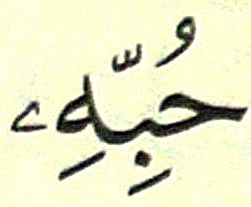 حُبِّهِۦ